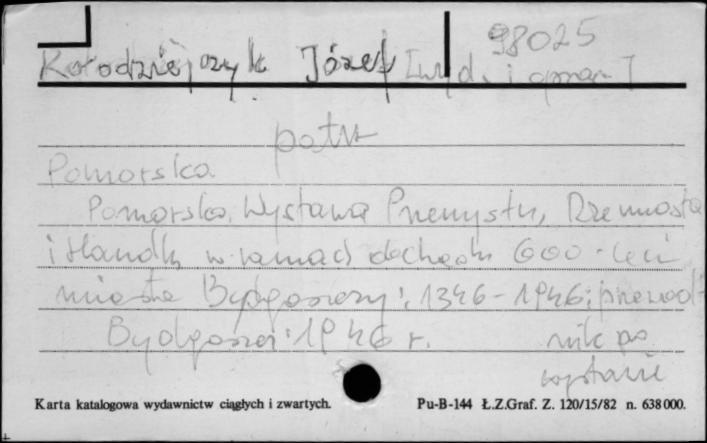 98025
Kołodziejczyk Józef [wyd. i oprac.]
patrz
Pomorska
Pomorska Wystawa Przemysłu, Rzemiosła
i Handlu w ramach obchodu 600-lecia
miasta Bydgoszczy: 1346-1946: przewod-
Bydgoszcz: 1946 r. nik po
wystawie
Karta katalogowa wydawnictw ciągłych i zwartych. Pu-B-144 Ł.Z.Graf. Z. 120/15/82 n. 638000.